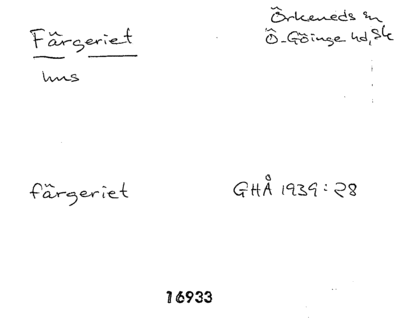 Färgeriet
hus
Örkeneds sn
Ö. Göinge hd, Sk
färgeriet
GHÅ 1939:28
16933